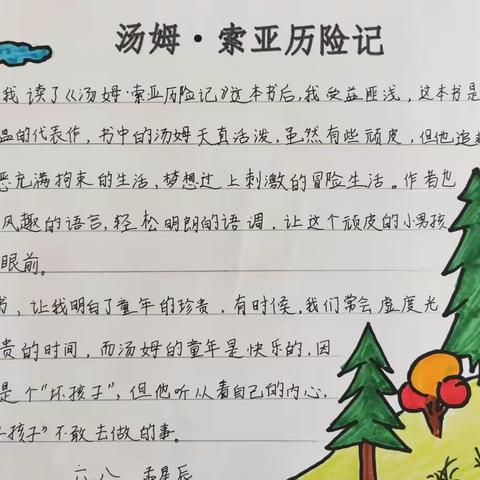 汤姆·索亚历险记
我读了《汤姆·索亚历险记》这本书后,我受益匪浅,这本书是
温的代表作,书中的汤姆天真活泼,虽然有些顽皮,但他追
恶充满拘束的生活,梦想过上刺激的冒险生活。作者也
风趣的语言,轻松明朗的语调,让这个顽皮的小男孩
眼前。
书,让我明白了童年的珍贵,有时候,我们常会虚度光
贵的时间,而汤姆的童年是快乐的,因
是个“坏孩子”,但他听从着自己的内心,
孩子”不敢去做的事。
六、八 孟星辰